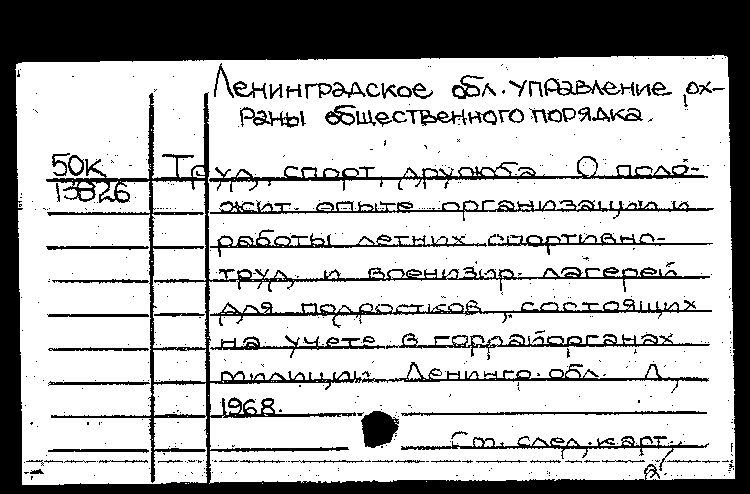 Ленинградское обл. управление ох-
раны общественного порядка.
50к Труд, спорт, дружба. О поло-
13826 жит. опыте организации и
работы летних спортивно-
труд. и военизир. лагерей
для подростков, состоящих
на учете в горрайорганах
милиции Ленингр. обл. Л.,
1968.
См. след. карт.
2